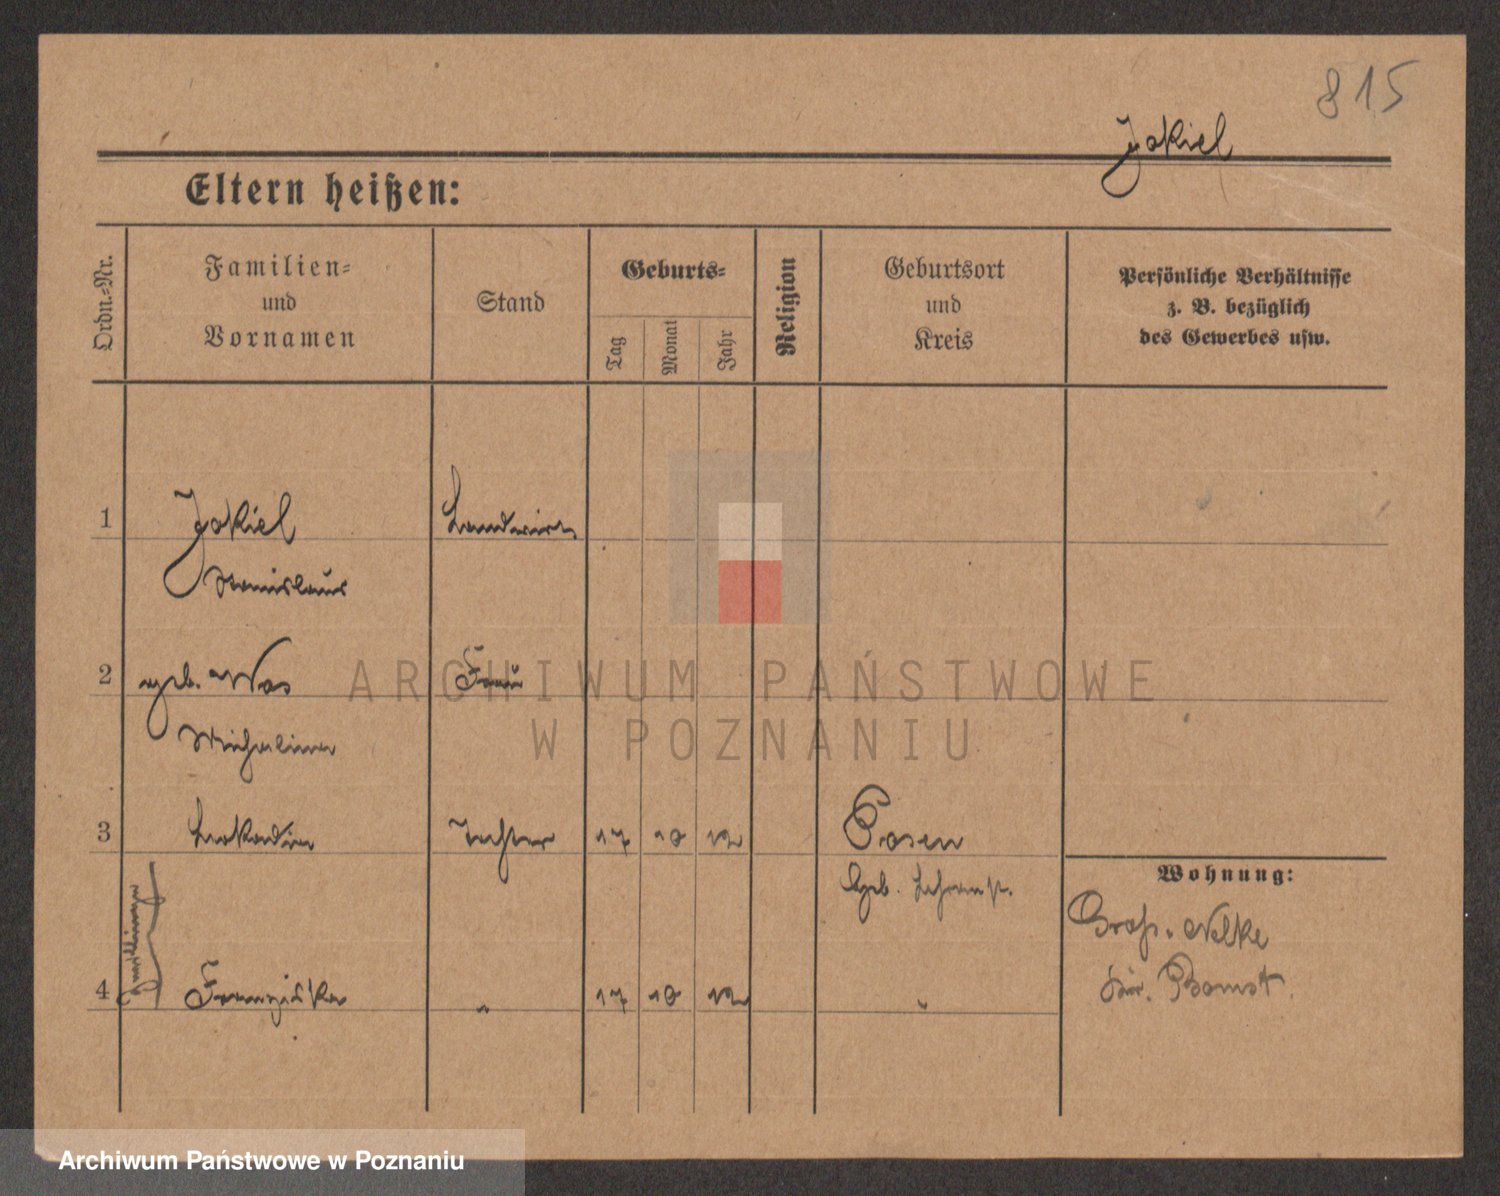 815
Jakiel
Eltern heißen:
Ordn.-Nr.
Familien-
und
Vornamen
Stand
Geburts-
Tag
Monat
Jahr
Religion
Geburtsort
und
Kreis
Persönliche Verhältnisse
z. B. bezüglich
des Gewerbes usw.
1 Jakiel Landwirt
Stanislaus
2 geb. Was Frau
3 Leokadia Tochter 17 10 12 Posen
Geb.
4 Franziska " 17 10 12 "
Wohnung:
Groß. Nelke
Kr. Bomst.
ARCHIWUM PAŃSTWOWE
W POZNANIU
Archiwum Państwowe w Poznaniu